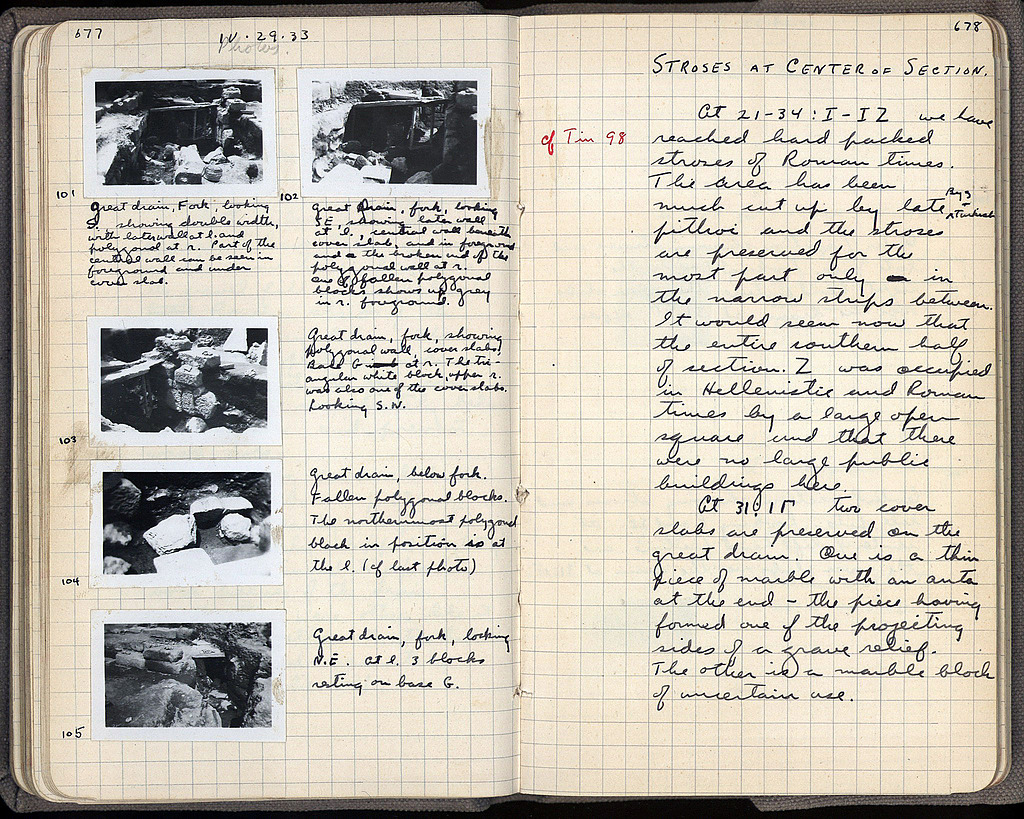 677
IV.29.33
Photos.
101
Great drain, Fork, looking
S. showing double width,
with later wall at l. and
polygonal at r. Part of the
central wall can be seen in
foreground and under
cover slab.
102
Great Drain, fork, looking
S.E. showing later wall
at l., central wall beneath
cover slab, and in foreground
and the broken end of the
polygonal wall at r.
One of fallen polygonal
blocks shows up grey
in r. foreground.
103
Great drain, fork, showing
polygonal wall, cover slabs,
Base G at r. The tri-
angular white block, upper r.
was also one of the cover slabs.
Looking S.W.
104
Great drain, below fork.
Fallen polygonal blocks.
The northernmost polygonal
block in position is at
the l. (cf last photo)
105
Great drain, fork, looking
N.E. At l. 3 blocks
resting on base G.
678
STROSES AT CENTER OF SECTION.
cf Tin 98
At 21-34 : I-IZ we have
reached hard packed
stroses of Roman times.
The area has been
much cut up by late Byz + Turkish
pithoi and the stroses
are preserved for the
most part only in
the narrow strips between.
It would seem now that
the entire southern half
of section Z was occupied
in Hellenistic and Roman
times by a large open
square and that there
were no large public
buildings here.
At 31:ΙΓ two cover
slabs are preserved on the
great drain. One is a thin
piece of marble with an anta
at the end - the piece having
formed one of the projecting
sides of a grave relief.
The other is a marble block
of uncertain use.